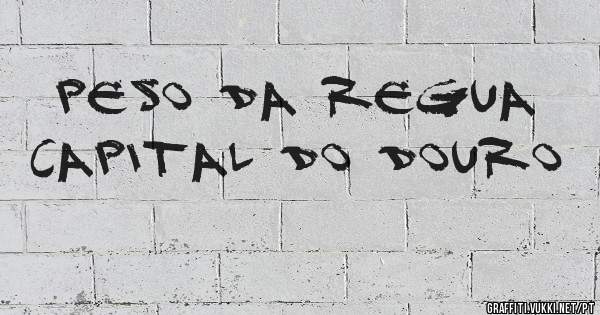 PESO DA REGUA
CAPITAL DO DOURO
GRAFFITI.VUKKI.NET/PT